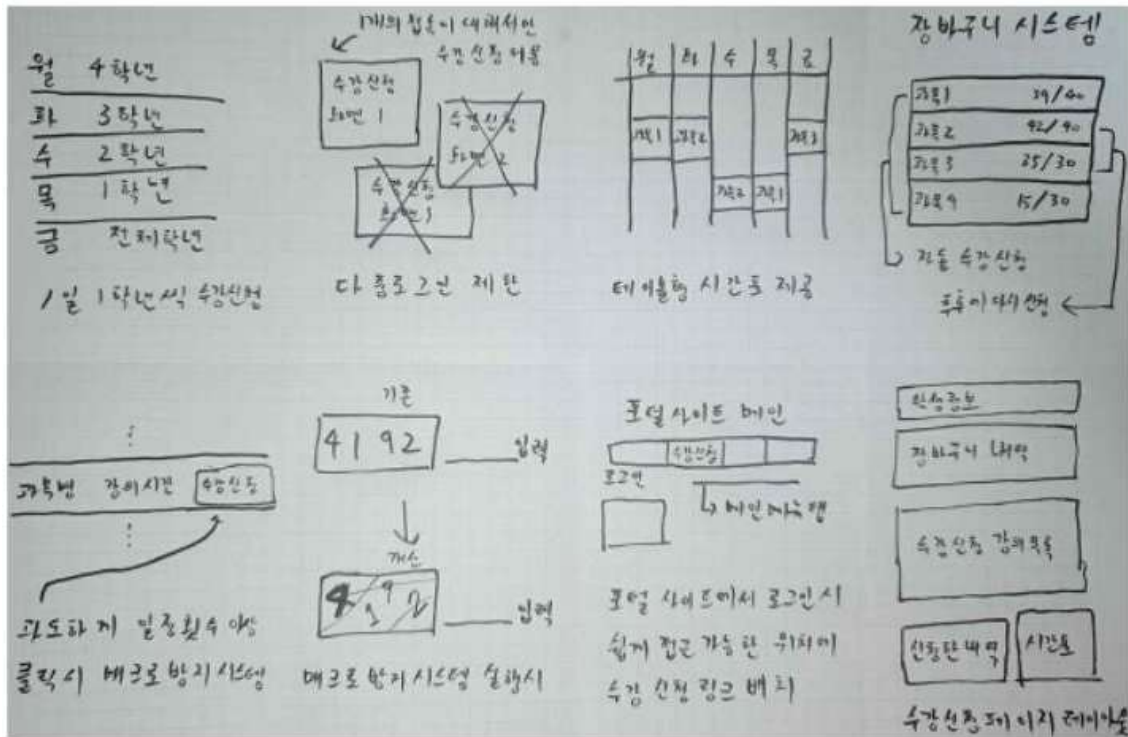 월 4학년
화 3학년
수 2학년
목 1학년
금 전체학년
1일 1학년씩 수강신청
1개의 접속에 대해서만
수강신청 허용
수강신청
화면 1
수강신청
화면 2
수강신청
화면 3
다중로그인 제한
월 화 수 목 금
과목1 과목2 과목3
과목2 과목1
테이블형 시간표 제공
장바구니 시스템
과목1 39/40
과목2 42/40
과목3 35/30
과목4 15/30
자동 수강신청
추후에 다시 신청
과목명 강의시간 수강신청
과도하게 일정횟수 이상
클릭시 매크로 방지 시스템
기존
4192 입력
개선
4 1 9 2 입력
매크로 방지 시스템 실행시
포털 사이트 메인
수강신청
로그인
메인메뉴탭
포털 사이트에서 로그인 시
쉽게 접근 가능한 위치에
수강 신청 링크 배치
학생정보
장바구니 내역
수강신청 강의목록
신청한내역 시간표
수강신청 페이지 레이아웃